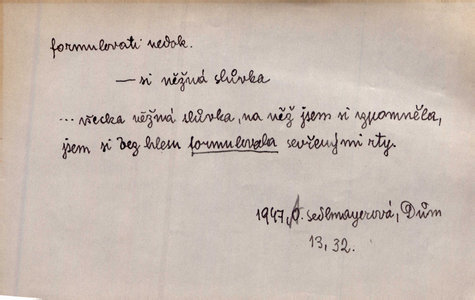 formulovati nedok.
— si něžná slůvka
... všecka něžná slůvka, na něž jsem si vzpomněla,
jsem si bez hlesu formulovala sevřenými rty.
1947, A. Sedlmayerová, Dům
13, 32.